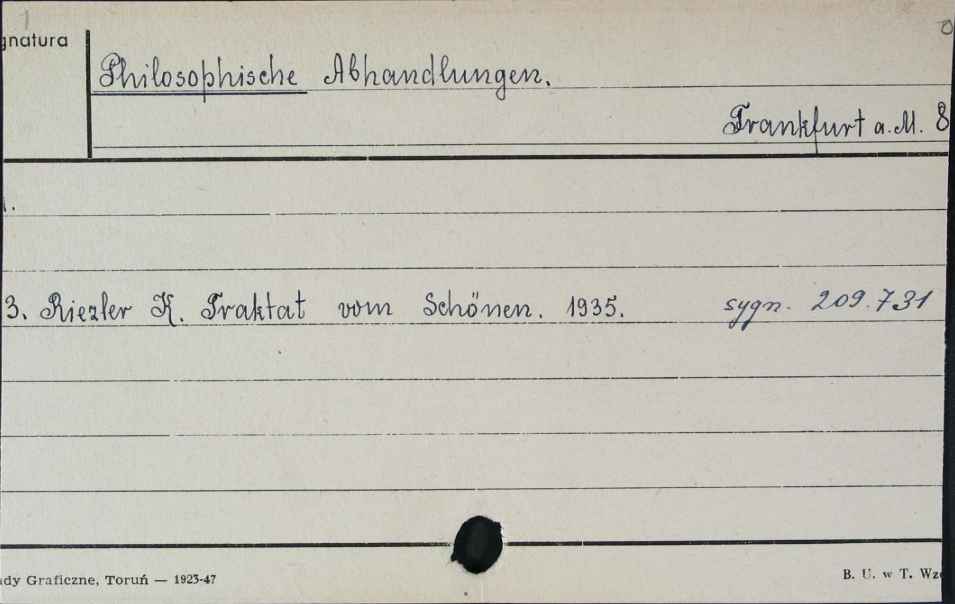 gnatura
Philosophische Abhandlungen.
Frankfurt a. M. 8
3. Riezler K. Traktat vom Schönen. 1935. sygn. 209.731
ady Graficzne, Toruń — 1923-47
B. U. w T. Wz